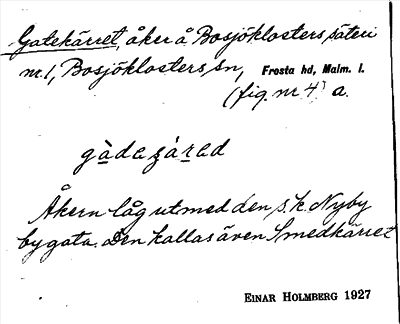 Gatekärret, åker å Bosjöklosters säteri
nr. 1, Bosjöklosters sn, Frosta hd, Malm. l.
(fig. nr 4) a.
gàdaʒárad
Åkern låg utmed den s. k. Nyby
bygata. Den kallas även Smedkärret
EINAR HOLMBERG 1927